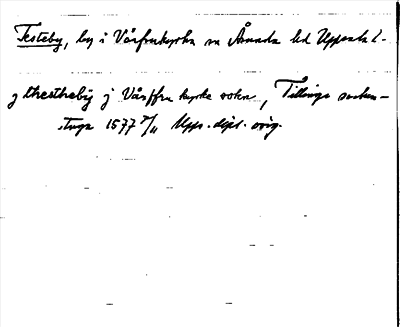 Testeby, by i Vårfrukyrka sn Åsunda hd Uppsala l.
j threstheby j Vårffru kyrke sokn, Tillinge socken-
stuga 1577 5/11 Upps. dipl. orig.